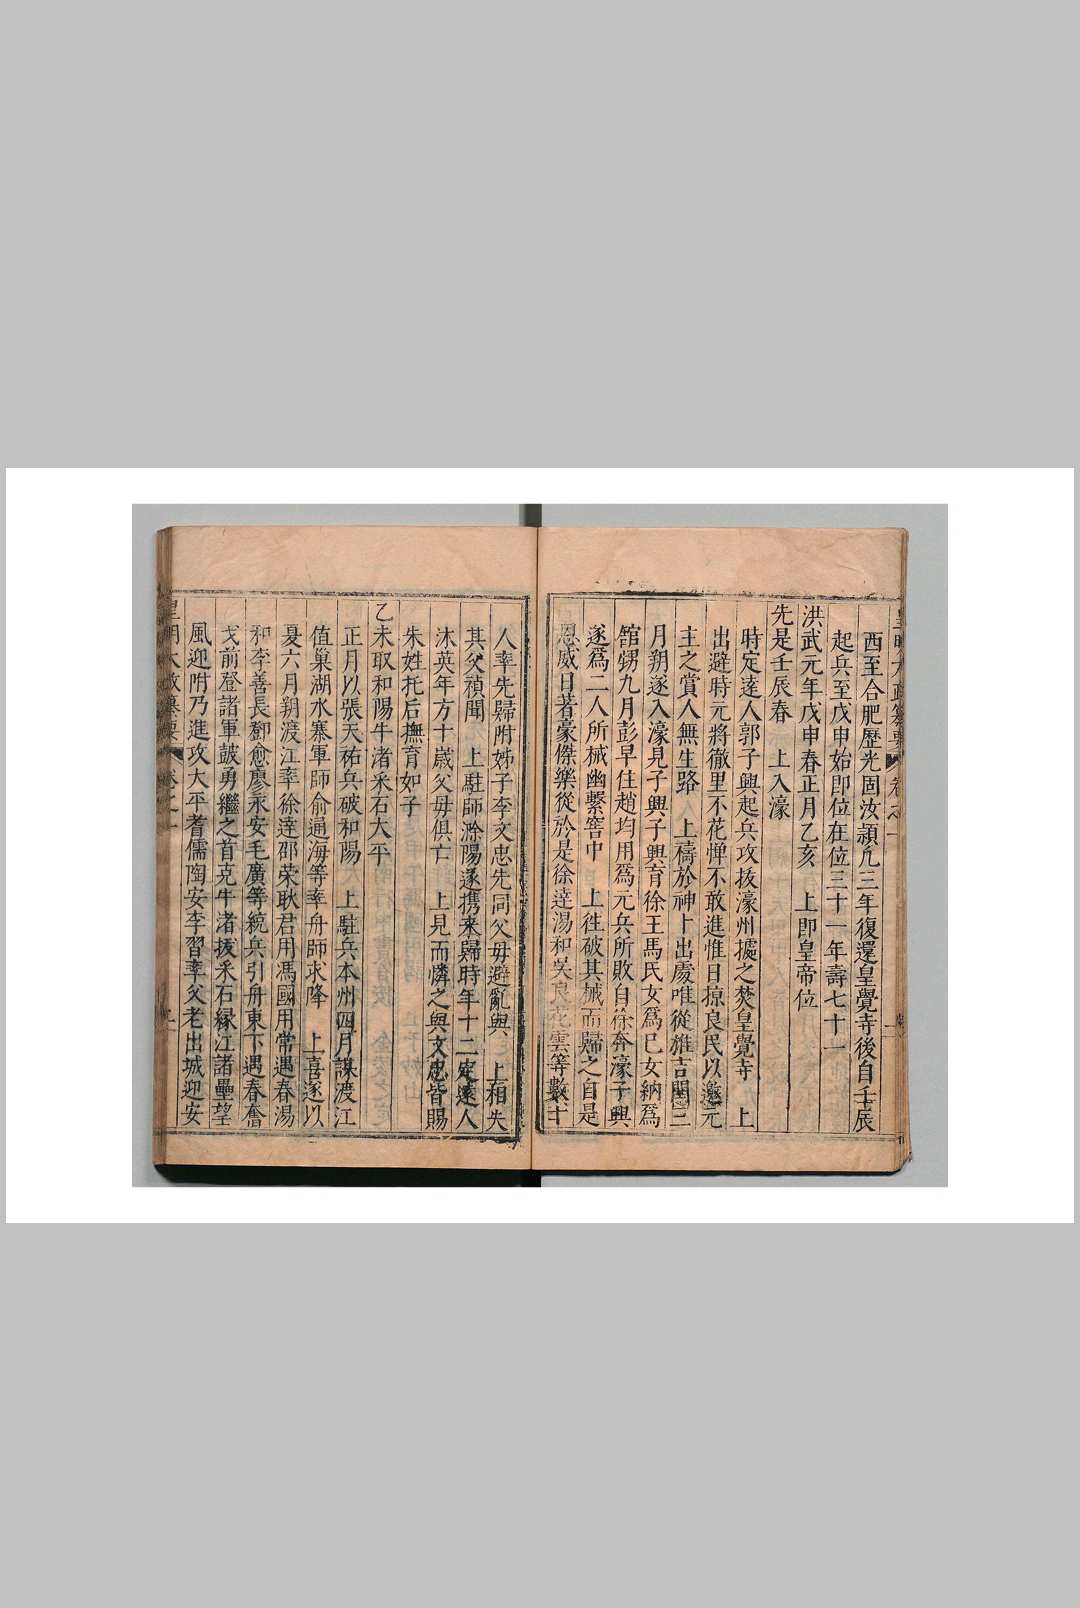 西至合肥歷光固汝潁凡三年復還皇覺寺後自壬辰
起兵至戊申始即位在位三十一年壽七十一
洪武元年戊申春正月乙亥　上即皇帝位
先是壬辰春　上入濠
時定遠人郭子興起兵攻拔濠州據之焚皇覺寺　上
出避時元將徹里不花憚不敢進惟日掠良民以邀元
主之賞人無生路　上禱於神卜出處唯從雉吉閏三
月朔遂入濠見子興子興育徐王馬氏女爲已女納爲
舘甥九月彭早住趙均用爲元兵所敗自徐奔濠子興
遂爲二人所械幽繫窖中　上徃破其械而歸之自是
恩威日著豪傑樂從於是徐逹湯和吳良花雲等數十
人率先歸附姊子李文忠先同父母避亂與　上相失
其父禎聞　上駐師滁陽遂携來歸時年十二定遠人
沐英年方十歲父母俱亡　上見而憐之與文忠皆賜
朱姓托后撫育如子
乙未取和陽牛渚采石大平
正月以張天祐兵破和陽　上駐兵本州四月謀渡江
值巢湖水寨軍師俞通海等率舟師求降　上喜遂以
夏六月朔渡江率徐逹邵荣耿君用馮國用常遇春湯
和李善長鄧愈廖永安毛廣等統兵引舟東下遇春奮
戈前登諸軍鼓勇繼之首克牛渚拔采石緣江諸壘望
風迎附乃進攻大平耆儒陶安李習率父老出城迎安
皇明大政纂要　卷之一